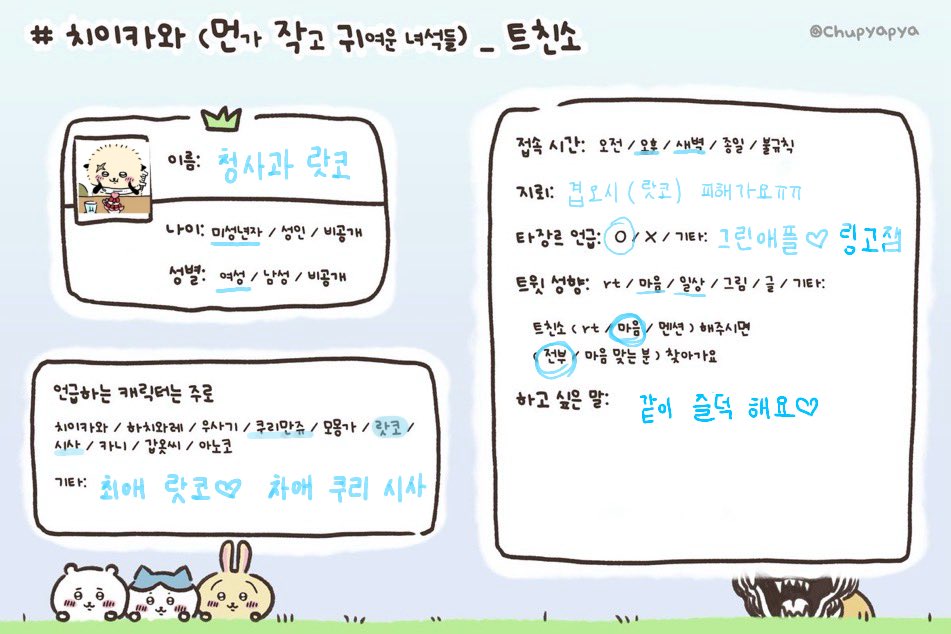 # 치이카와 (먼가 작고 귀여운 녀석들) _ 트친소
@Chupyapya
이름: 청사과 랏코
나이: 미성년자 / 성인 / 비공개
성별: 여성 / 남성 / 비공개
언급하는 캐릭터는 주로
치이카와 / 하치와레 / 우사기 / 쿠리만쥬 / 모몽가 / 랏코 /
시사 / 카니 / 갑옷씨 / 아노코
기타: 최애 랏코♡ 차애 쿠리 시사
접속 시간: 오전 / 오후 / 새벽 / 종일 / 불규칙
지뢰: 겹오시 (랏코) 피해가요ㅠㅠ
타장르 언급: O / X / 기타: 그린애플♡ 링고잼
트윗 성향: rt / 마음 / 일상 / 그림 / 글 / 기타:
트친소 ( rt / 마음 / 멘션 ) 해주시면
( 전부 / 마음 맞는 분 ) 찾아가요
하고 싶은 말: 같이 즐덕 해요♡